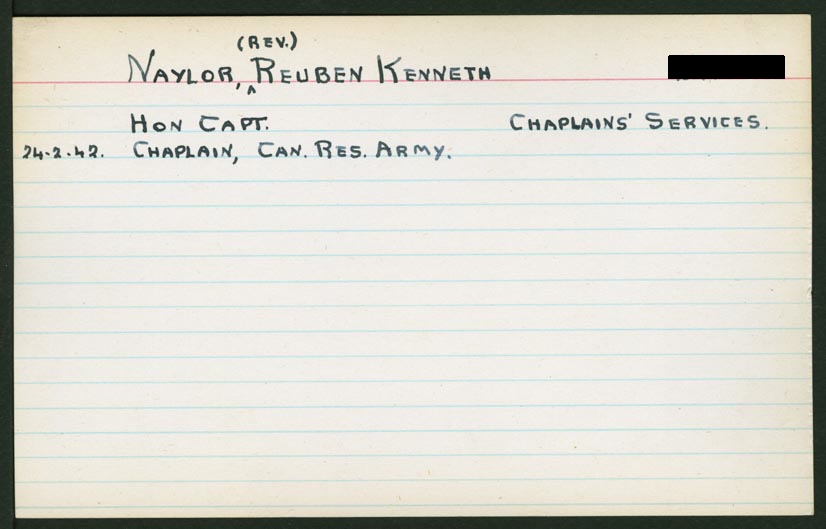 (REV.)
NAYLOR, ^ REUBEN KENNETH
HON CAPT. CHAPLAINS' SERVICES.
24-2-42. CHAPLAIN, CAN. RES. ARMY.